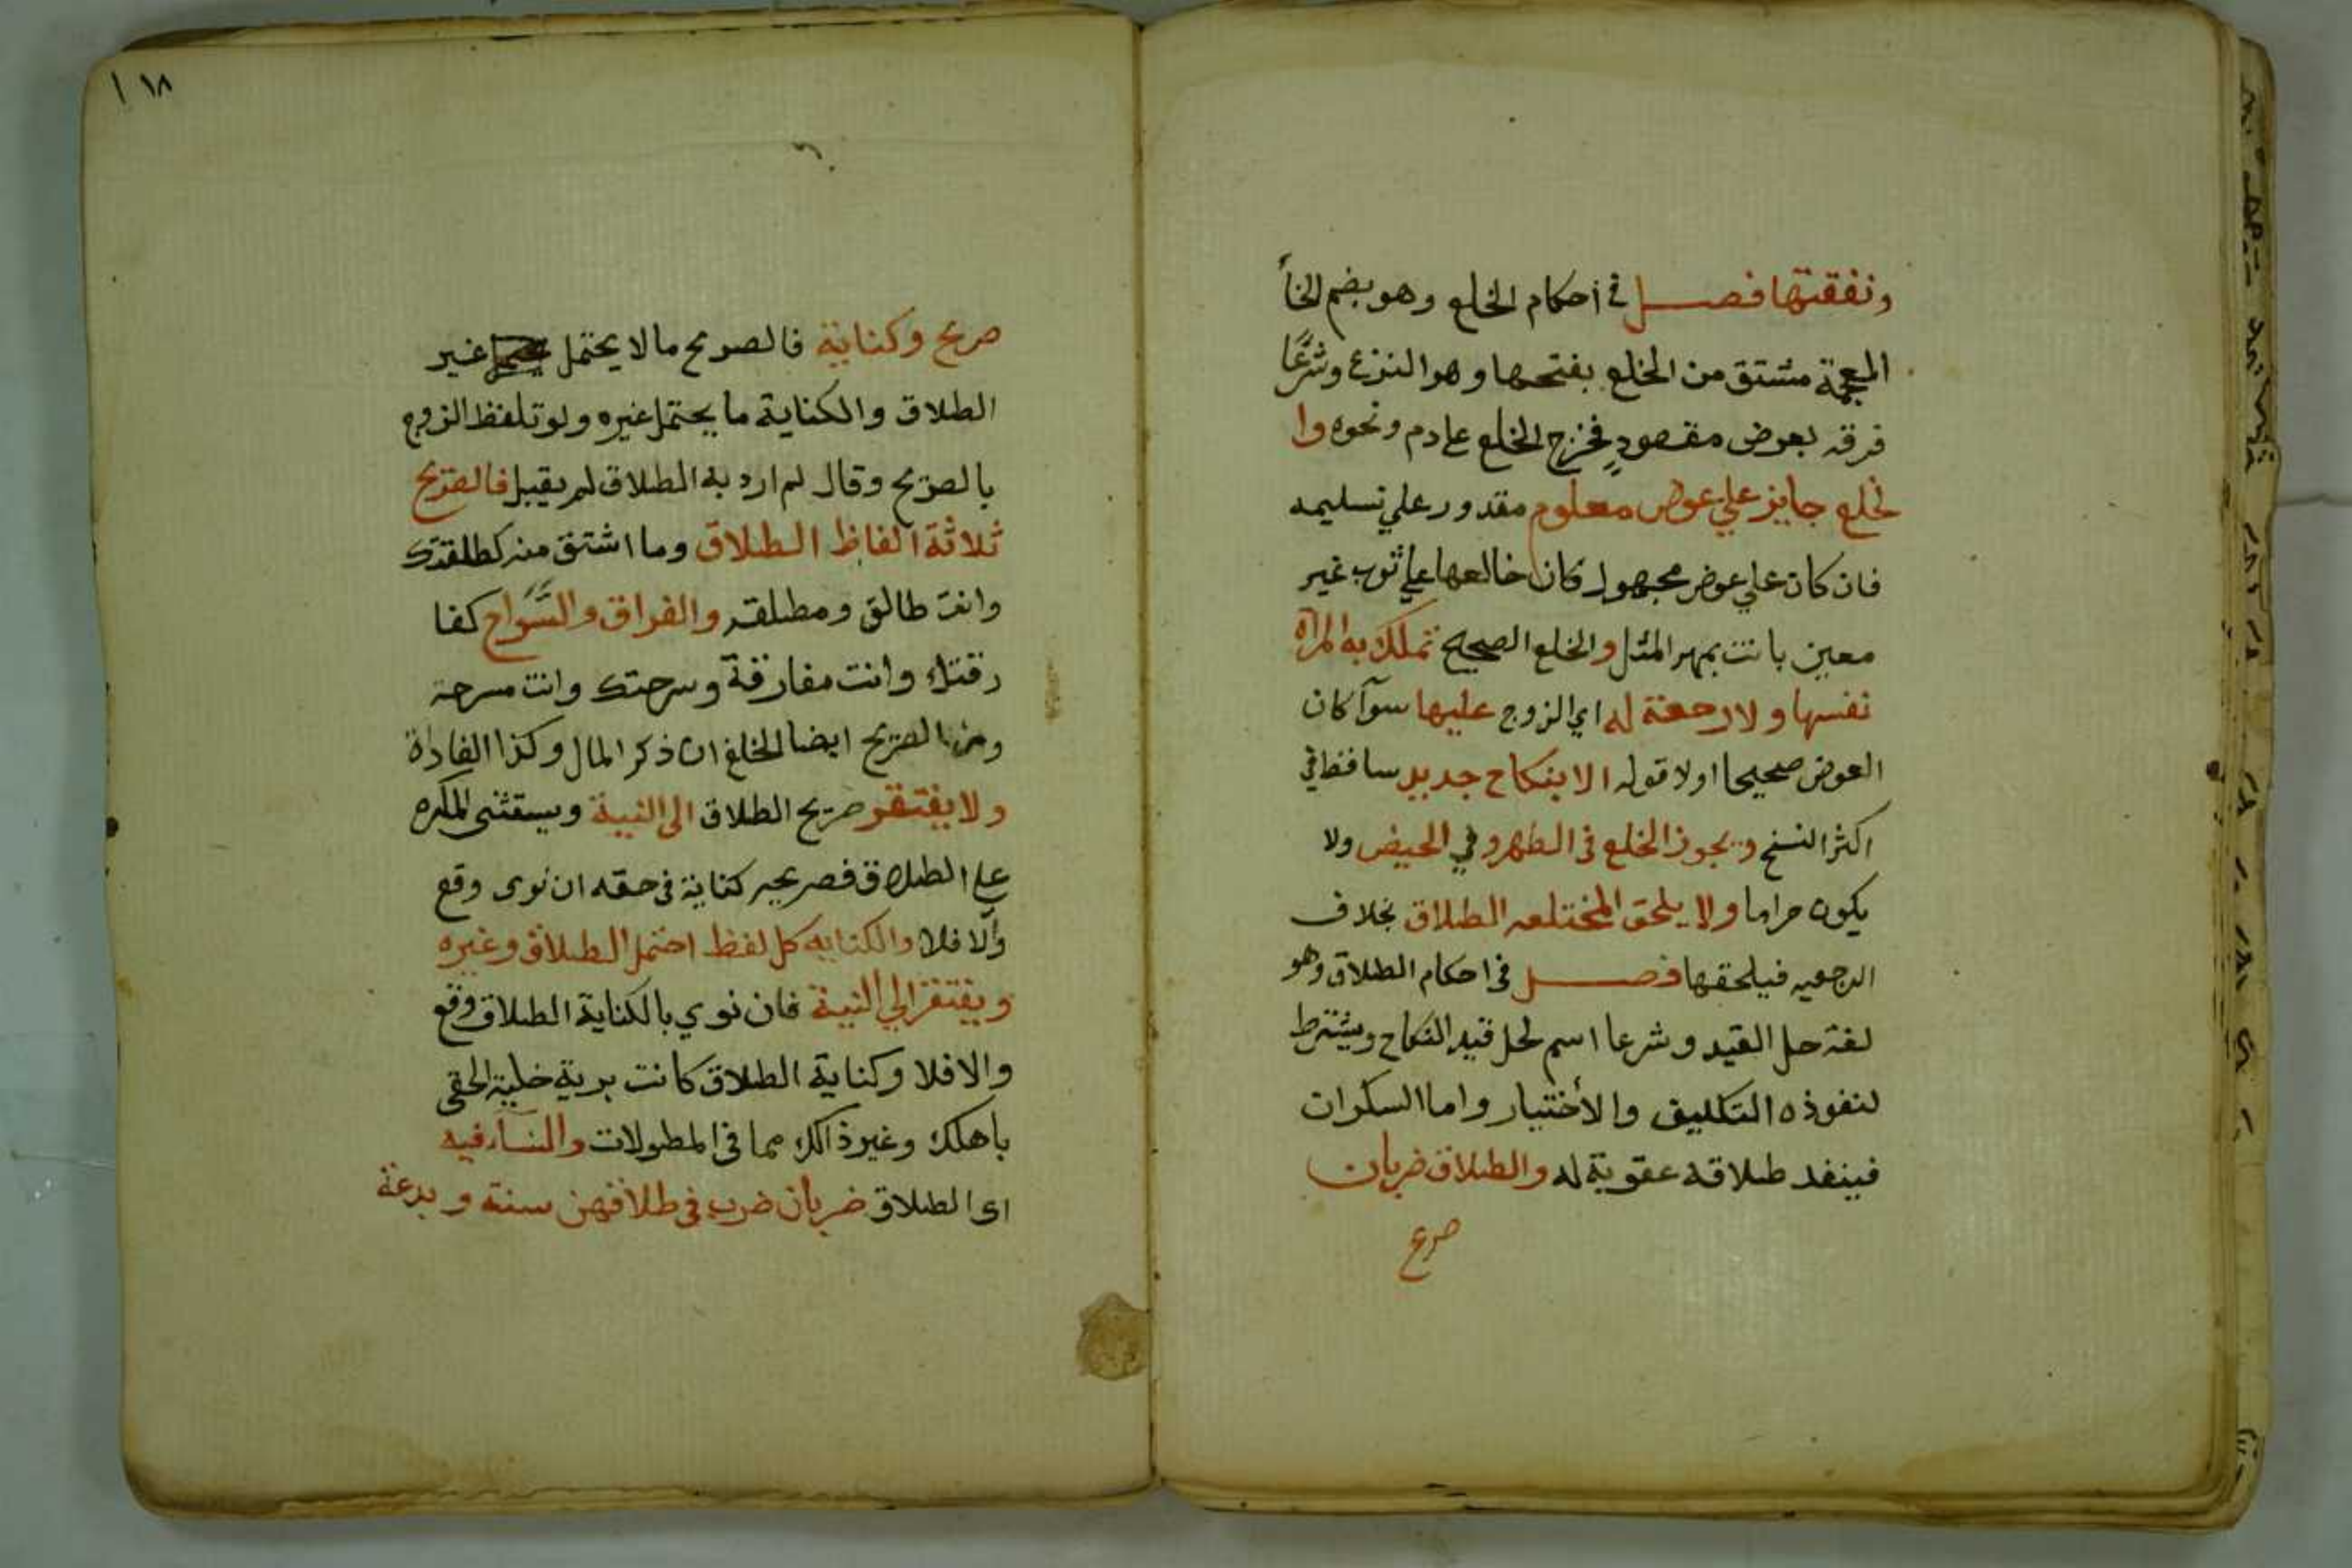 ونفقتها فصل في أحكام الخلع وهو بضم الخاء
المعجمة مشتق من الخلع بفتحها وهو النزع وشرعًا
فرقه بعوض مقصودٍ فخرج الخلع علي دم ونحوه وا
لخلع جايز علي عوض معلوم مقدور علي تسليمه
فان كان علي عوض مجهول كان خالعها علي ثوب غير
معين بانت بمهر المثل والخلع الصحيح تملك به المرأه
نفسها ولا رجعة له اي الزوج عليها سوآ كان
العوض صحيحا اولا قوله الا بنكاح جديد ساقط في
اكثر النسخ ويجوز الخلع في الطهر وفي الحيض ولا
يكون حراما ولا يلحق المختلعه الطلاق بخلاف
الرجعيه فيلحقها فصل في احكام الطلاق وهو
لغة حل القيد وشرعا اسم لحل قيد النكاح ويشترط
لنفوذه التكليف والأختيار واما السكران
فينفد طلاقه عقوبة له والطلاق ضربان
صريح
١٨
صريح وكناية فالصريح مالا يحتمل غير
الطلاق والكناية ما يحتمل غيره ولو تلفظ الزوج
بالصريح وقال لم ارد به الطلاق لم يقبل فالصريح
ثلاثة الفاظ الطلاق وما اشتق منه كطلقتك
وانت طالق ومطلقه والفراق والسَّراح كفا
رقتك وانت مفارقة وسرحتك وانت مسرحة
ومن الصريح ايضا الخلع ان ذكر المال وكذا المفاداة
ولا يفتقر صريح الطلاق الى النية ويستثنى المكره
علي الطلاق فصريحه كناية في حقه ان نوى وقع
وألا فلا والكنايه كل لفظ احتمل الطلاق وغيره
ويفتقر الي النية فان نوي بالكناية الطلاق وقع
والا فلا وكناية الطلاق كانت برية خلية الحقي
باهلك وغير ذالك مما في المطولات والنسآ فيه
اى الطلاق ضربان ضرب في طلاقهن سنة وبدعة